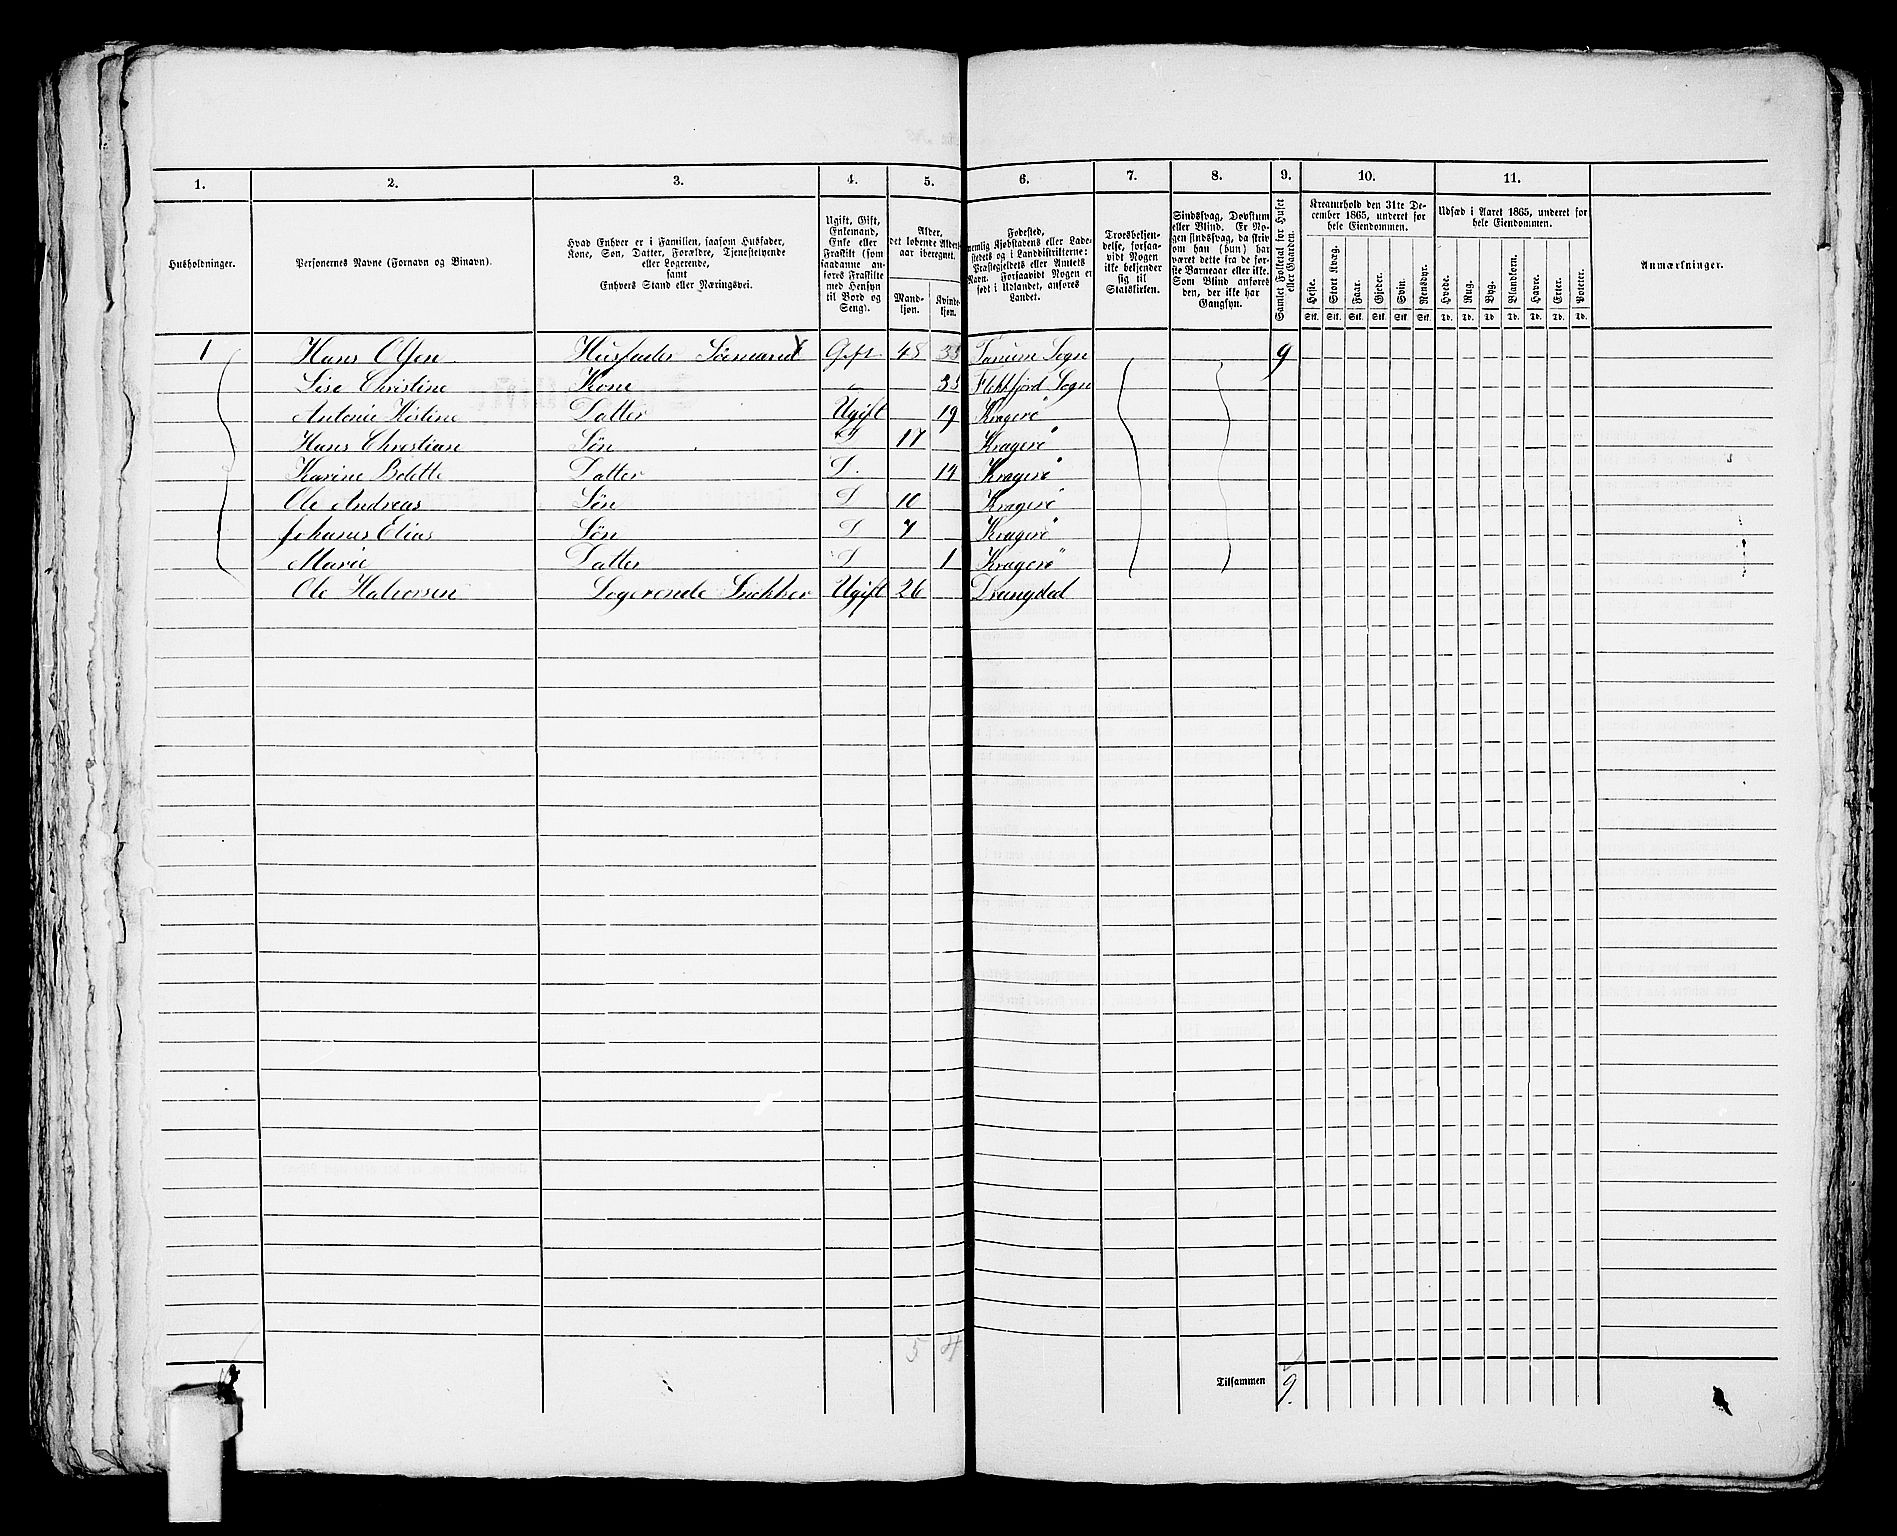 1. 2. 3. 4. 5. 6. 7. 8. 9. 10. 11.
Husholdninger.
Personernes Navne (Fornavn og Binavn).
Hvad Enhver er i Familien, saasom Husfader,
Kone, Søn, Datter, Forældre, Tjenestetyende
eller Logerende,
samt
Enhvers Stand eller Næringsvei.
Ugift, Gift,
Enkemand,
Enke eller
Fraskilt (som
saadanne an-
føres Fraskilte
med Hensyn
til Bord og
Seng).
Alder,
det løbende Alders-
aar iberegnet.
Mand-
kjøn.
Kvinde-
kjøn.
Fødested,
nemlig Kjøbstadens eller Lade-
stedets og i Landdistrikterne:
Præstegjeldets eller Amtets
Navn. Forsaavidt Nogen er
født i Udlandet, anføres
Landet.
Troesbekjen-
delse, forsaa-
vidt Nogen
ikke bekjender
sig til
Statskirken.
Sindssvag, Døvstum
eller Blind. Er No-
gen sindssvag, da skriv
om han (hun) har
været dette fra de før-
ste Barneaar eller ikke.
Som Blind anføres
den, der ikke har
Gangsyn.
Samlet Folketal for Huset
eller Gaarden.
Kreaturhold den 31te De-
cember 1865, underet for
hele Eiendommen.
Heste. Stort Kvæg. Faar. Gjeder. Svin. Rensdyr.
Stk. Stk. Stk. Stk. Stk. Stk.
Udsæd i Aaret 1865, underet for
hele Eiendommen.
Hvede. Rug. Byg. Blandkorn. Havre. Erter. Poteter.
Td. Td. Td. Td. Td. Td. Td.
Anmærkninger.
1 Hans Olsen Husfader Sømand Gift 48 33 Tanum Sogn 9
Lise Christine Kone " 33 Flekkfjord Sogn
Antonie Kistine Datter Ugift 19 Kragerö
Hans Christian Søn D 17 Kragerö
Karine Bolette Datter D. 14 Kragerö
Ole Andreas Søn D 10 Kragerö
Johanes Elias Søn D 7 Kragerö
Marie Datter D 1 Kragerö
Ole Halvorsen Logerende Snekker Ugift 26 Drangdal
5 4
Tilsammen 9.